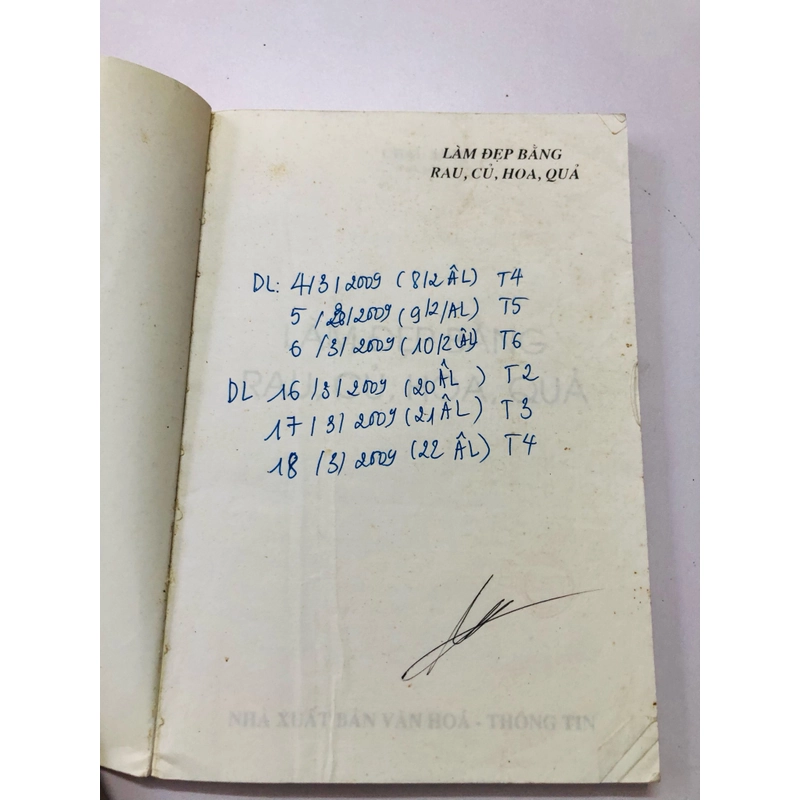 LÀM ĐẸP BẰNG
RAU, CỦ, HOA, QUẢ
DL: 4/3/2009 (8/2 ÂL) T4
5 /3/2009 (9/2/AL) T5
6 /3/ 2009 (10/2 ÂL) T6
LÀM ĐẸP BẰNG
DL 16/3/2009 (20 ÂL ) T2
RAU, CỦ, HOA, QUẢ
17/3/2009 (21 ÂL) T3
18 /3/ 2009 (22 ÂL) T4
NHÀ XUẤT BẢN VĂN HOÁ - THÔNG TIN